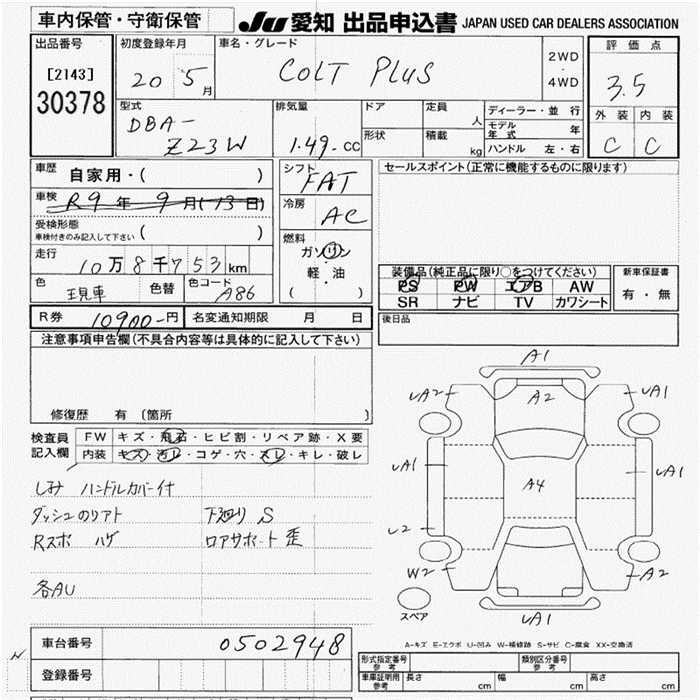 車内保管・守衛保管 JU 愛知 出品申込書 JAPAN USED CAR DEALERS ASSOCIATION
出品番号 初度登録年月 車名・グレード 評価点
[2143] 20 5月 COLT PLUS 2WD・4WD 3.5
30378
型式 排気量 ドア 定員 人 ディーラー・並行 外装 内装
DBA-Z23W 1.49-cc 形状 積載 kg モデル年式 年 C C
ハンドル 左・右
車歴 自家用・( ) シフト FAT セールスポイント(正常に機能するものに限ります)
車検 R9年9月(13日) 冷房 AC
受検形態 車検付きのみ記入して下さい ( )
燃料 ガソリン
走行 10万8千753km 軽・油
( )
色 現車 色替 色コード A86
装備品(純正品に限り○をつけてください) 新車保証書
PS PW エアB AW 有・無
SR ナビ TV カワシート
R券 10900-円 名変通知期限 月 日 後日品
注意事項申告欄(不具合内容等は具体的に記入して下さい)
修復歴 有(箇所 )
検査員記入欄 FW キズ・飛石・ヒビ割・リペア跡・X要
内装 キズ・汚レ・コゲ・穴・スレ・キレ・破レ
しみ ハンドルカバー付
ダッシュのリアト 下廻り S
Rスポ ハゲ ロアサポート歪
各AU
A1
UA2 A2 UA1
UA1 A4 UA1
U2
W2 A2
スペア UA1
A-キズ E-エクボ U-凹み W-補修跡 S-サビ C-腐食 XX-交換済
車台番号 0502948
登録番号
形式指定番号 参考 類別区分番号 参考
車庫証明用 参考 長さ cm 幅 cm 高さ cm